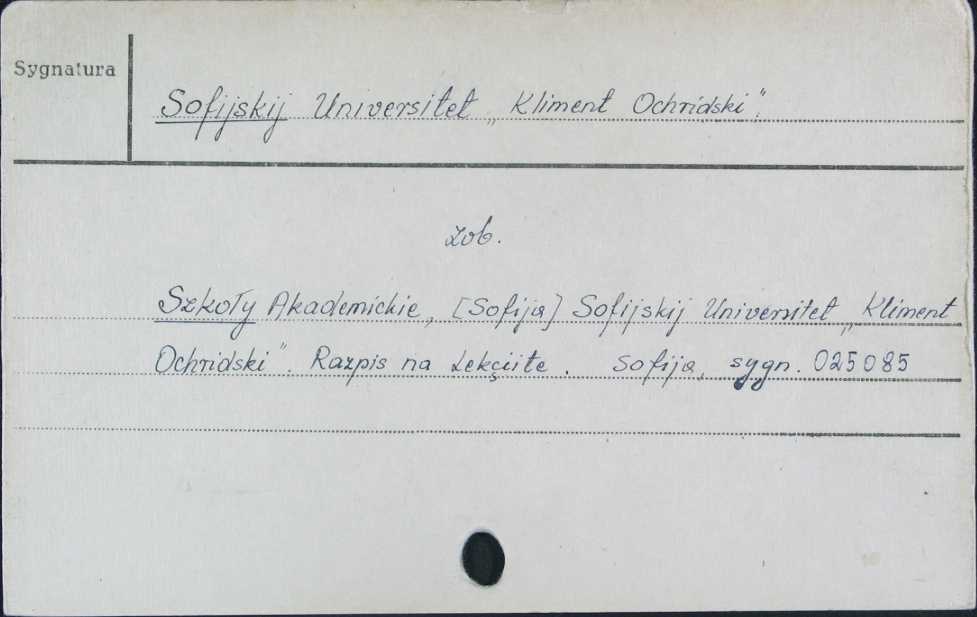 Sygnatura
Sofijskij Universitet „Kliment Ochridski".
zob.
Szkoły Akademickie, [Sofija] Sofijskij Universitet „Kliment
Ochridski". Razpis na Lekciite. Sofija, sygn. 025085